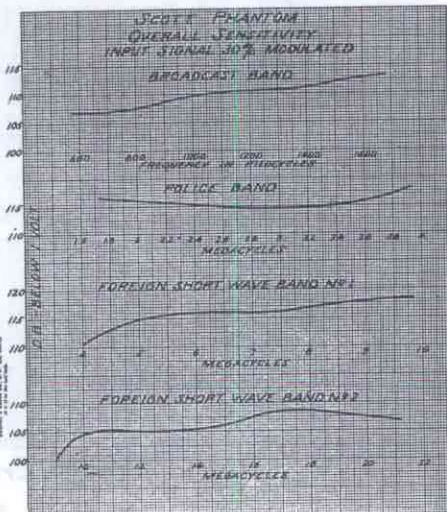 SCOTT PHANTOM
OVERALL SENSITIVITY
INPUT SIGNAL 30% MODULATED
BROADCAST BAND
115
110
105
100
600 800 1000 1200 1400 1600
FREQUENCY IN KILOCYCLES
POLICE BAND
115
110
MEGACYCLES
DB BELOW 1 VOLT
FOREIGN SHORT WAVE BAND Nº1
120
115
110
4 5 6 7 8 9 10
MEGACYCLES
FOREIGN SHORT WAVE BAND Nº2
110
105
100
10 12 14 16 18 20 22
MEGACYCLES